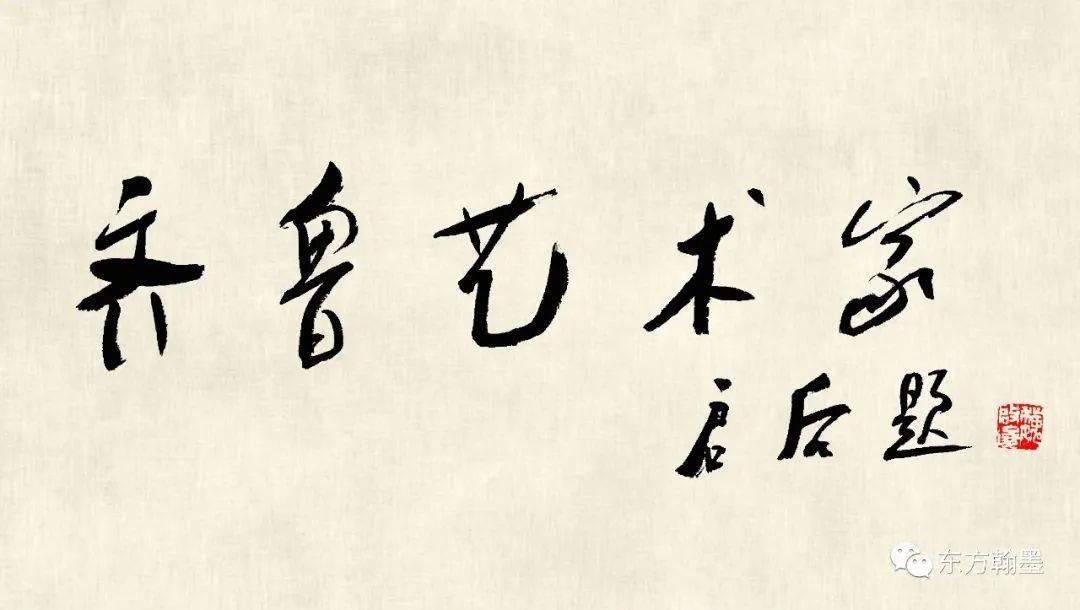 齐鲁艺术家
启后题
东方翰墨